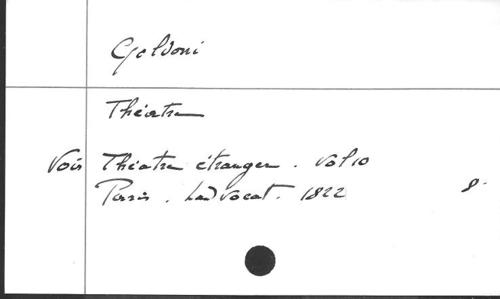 Goldoni
Théatre
Voir Théatre étranger. Vol 10
Paris. Ladvocat. 1822 8.